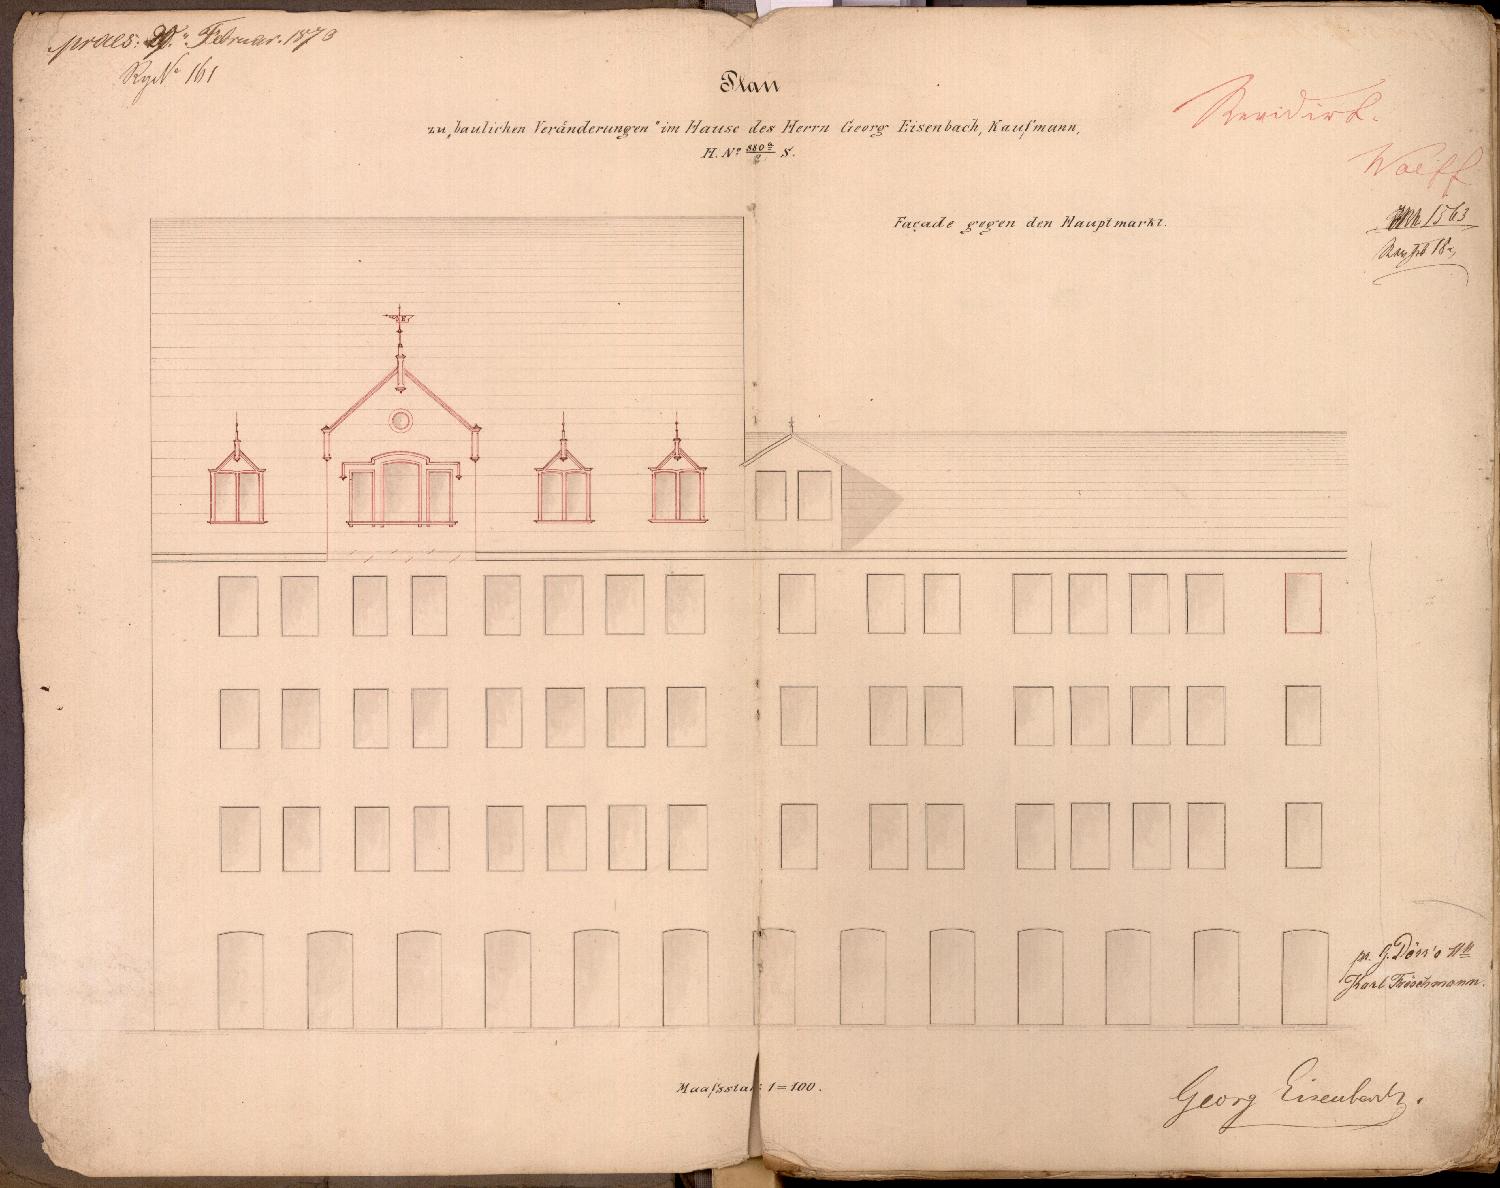 praes: 20. Februar. 1873
Reg No 161
Plan
zu „baulichen Veränderungen“ im Hause des Herrn Georg Eisenbach, Kaufmann,
H. No 880a/2 S.
Revidirt.
Wolff
1563
Façade gegen den Hauptmarkt.
pr. G. Dörr's
Karl Fröschmann.
Maaßstab 1=100.
Georg Eisenbach.